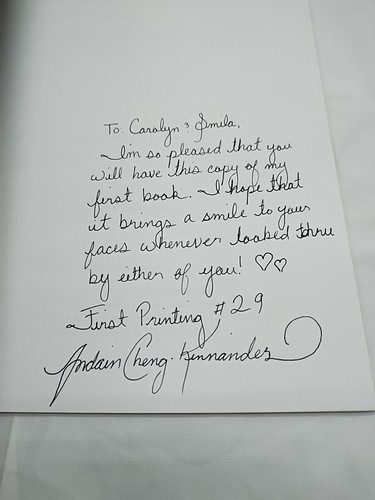 To: Carolyn & Smila,
I'm so pleased that you
will have this copy of my
first book. I hope that
it brings a smile to your
faces whenever looked thru
by either of you! ♡♡
First Printing #29
Andain Cheng-Hernandez